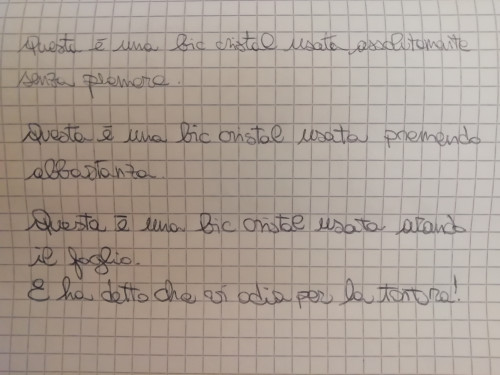 Questa è una bic cristal usata assolutamente
senza premere.
Questa è una bic cristal usata premendo
abbastanza.
Questa è una bic cristal usata arando
il foglio.
E ha detto che vi odia per la tortura!